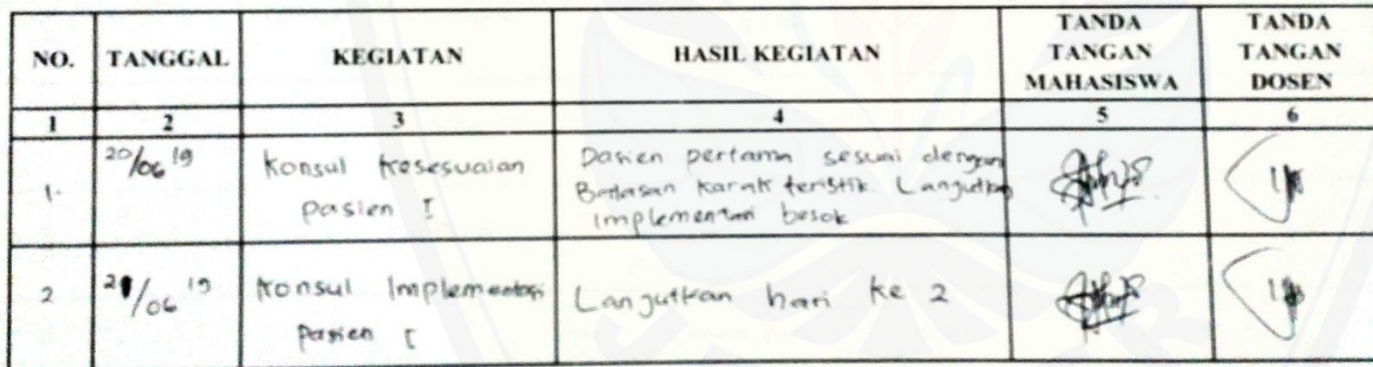 NO. TANGGAL KEGIATAN HASIL KEGIATAN TANDA TANGAN MAHASISWA TANDA TANGAN DOSEN
1 2 3 4 5 6
1. 20/06 19 Konsul Kesesuaian Pasien pertama sesuai dengan
pasien I Batasan karakteristik. Langutkan
Implementasi besok
2 21/06 19 Konsul Implementasi Langutkan hari ke 2
Pasien I